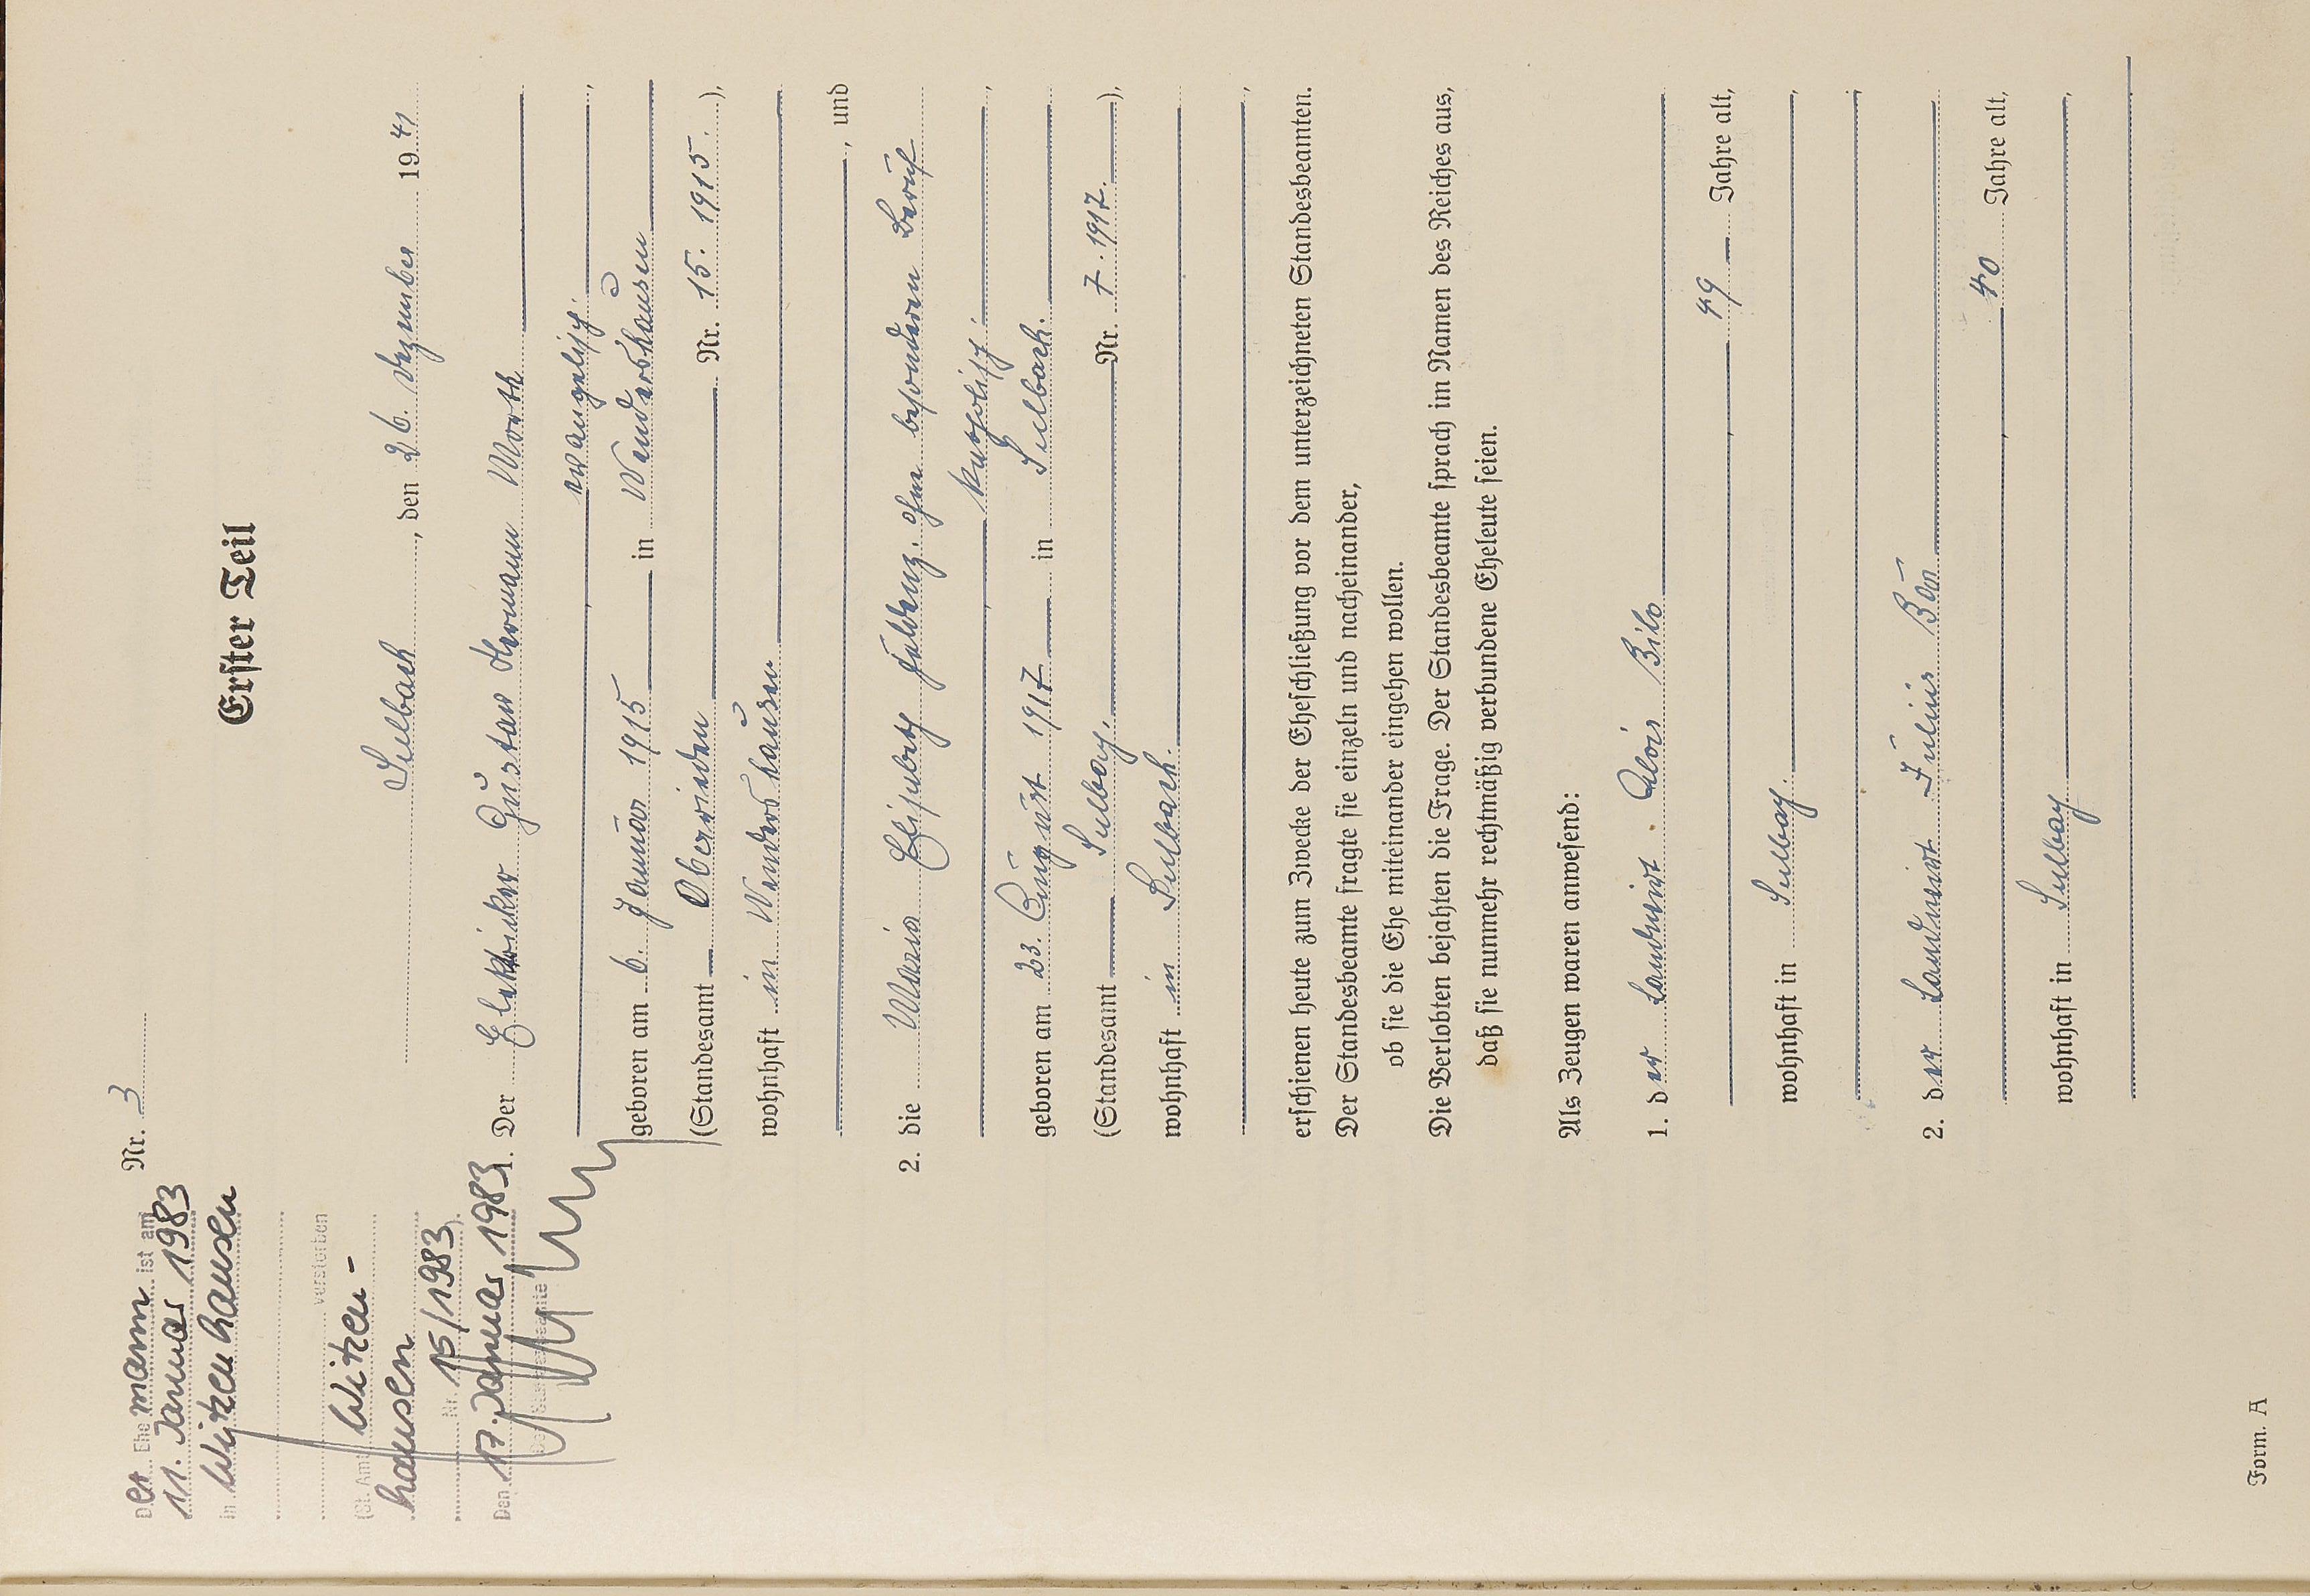 Der Ehemann ist am
11. Januar 1983
in Witzenhausen
verstorben
(St. Amt Witzen-
hausen
Nr. 15/1983).
Den 17. Januar 1983
Der Standesbeamte
Nr. 3
Erster Teil
Sulbach, den 26. Dezember 1941
1. Der Elektriker Gustav Hermann Morth
evangelisch,
geboren am 6. Januar 1915 in Wendershausen
(Standesamt Oberrieden Nr. 15. 1915.),
wohnhaft in Wendershausen
, und
2. die Maria Elisabeth ohne besonderen Beruf
, katholisch,
geboren am 23. August 1917 in Sulbach.
(Standesamt Sulbach, Nr. 7. 1917.),
wohnhaft in Sulbach.
,
erschienen heute zum Zwecke der Eheschließung vor dem unterzeichneten Standesbeamten.
Der Standesbeamte fragte sie einzeln und nacheinander,
ob sie die Ehe miteinander eingehen wollen.
Die Verlobten bejahten die Frage. Der Standesbeamte sprach im Namen des Reiches aus,
daß sie nunmehr rechtmäßig verbundene Eheleute seien.
Als Zeugen waren anwesend:
1. der Landwirt Alois Bilo
, 49 Jahre alt,
wohnhaft in Sulbach.,
;
2. der Landwirt Julius
, 40 Jahre alt,
wohnhaft in Sulbach,
Form. A